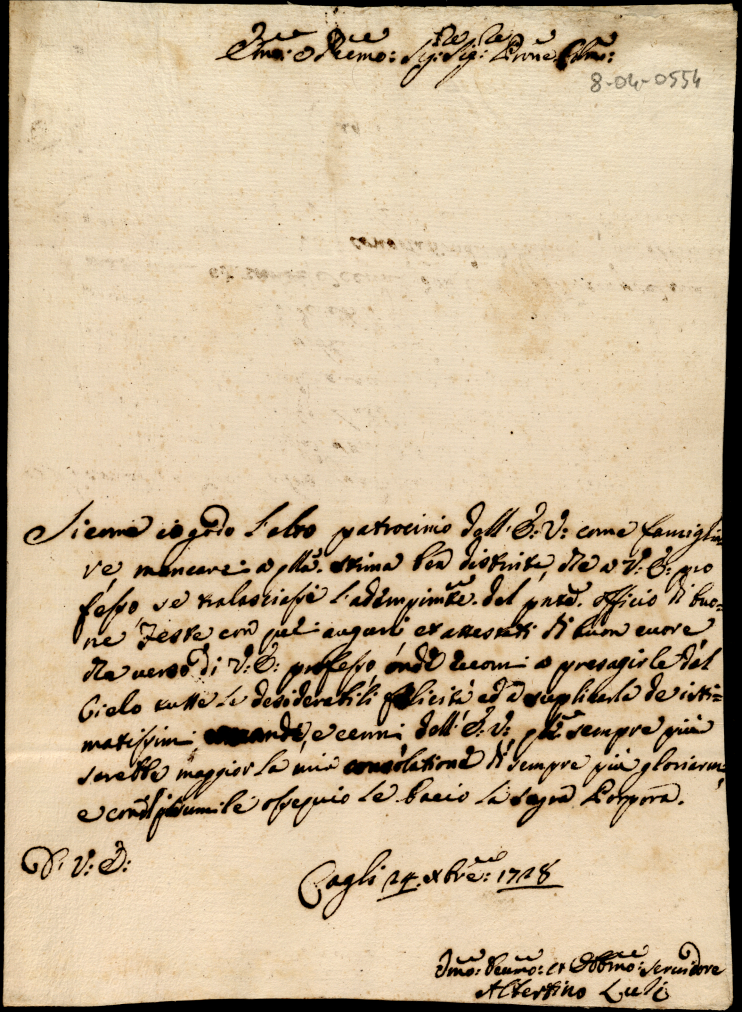 Emo: e Remo: Sig:re Sig:re Prone Colmo:
8-04-0554
Sicome io godo l'alto patrocinio dell'E: V: come famiglia
re mancarei a q̃lla stima ben distinta, che a V: E: pro
fesso se tralasciassi l'adempimto del pñte officio di buo=
ne Feste con gli augurj et attestati di buon cuore
che verso di V: E: professo onde eccomi a presagirle dal
Cielo tutte le desiderabili felicità ed a suplicarla de isti=
matissimi comandi, e cenni dell'E: V: sempre più
sarebbe maggior la mia consolatione di sempre più gloriarmi
e con ossequio le bacio la sagra Porpora.
D: V: E:
Cagli 24 Xbre: 1728
Umo: Devmo: et Obbmo: servidore
Albertino